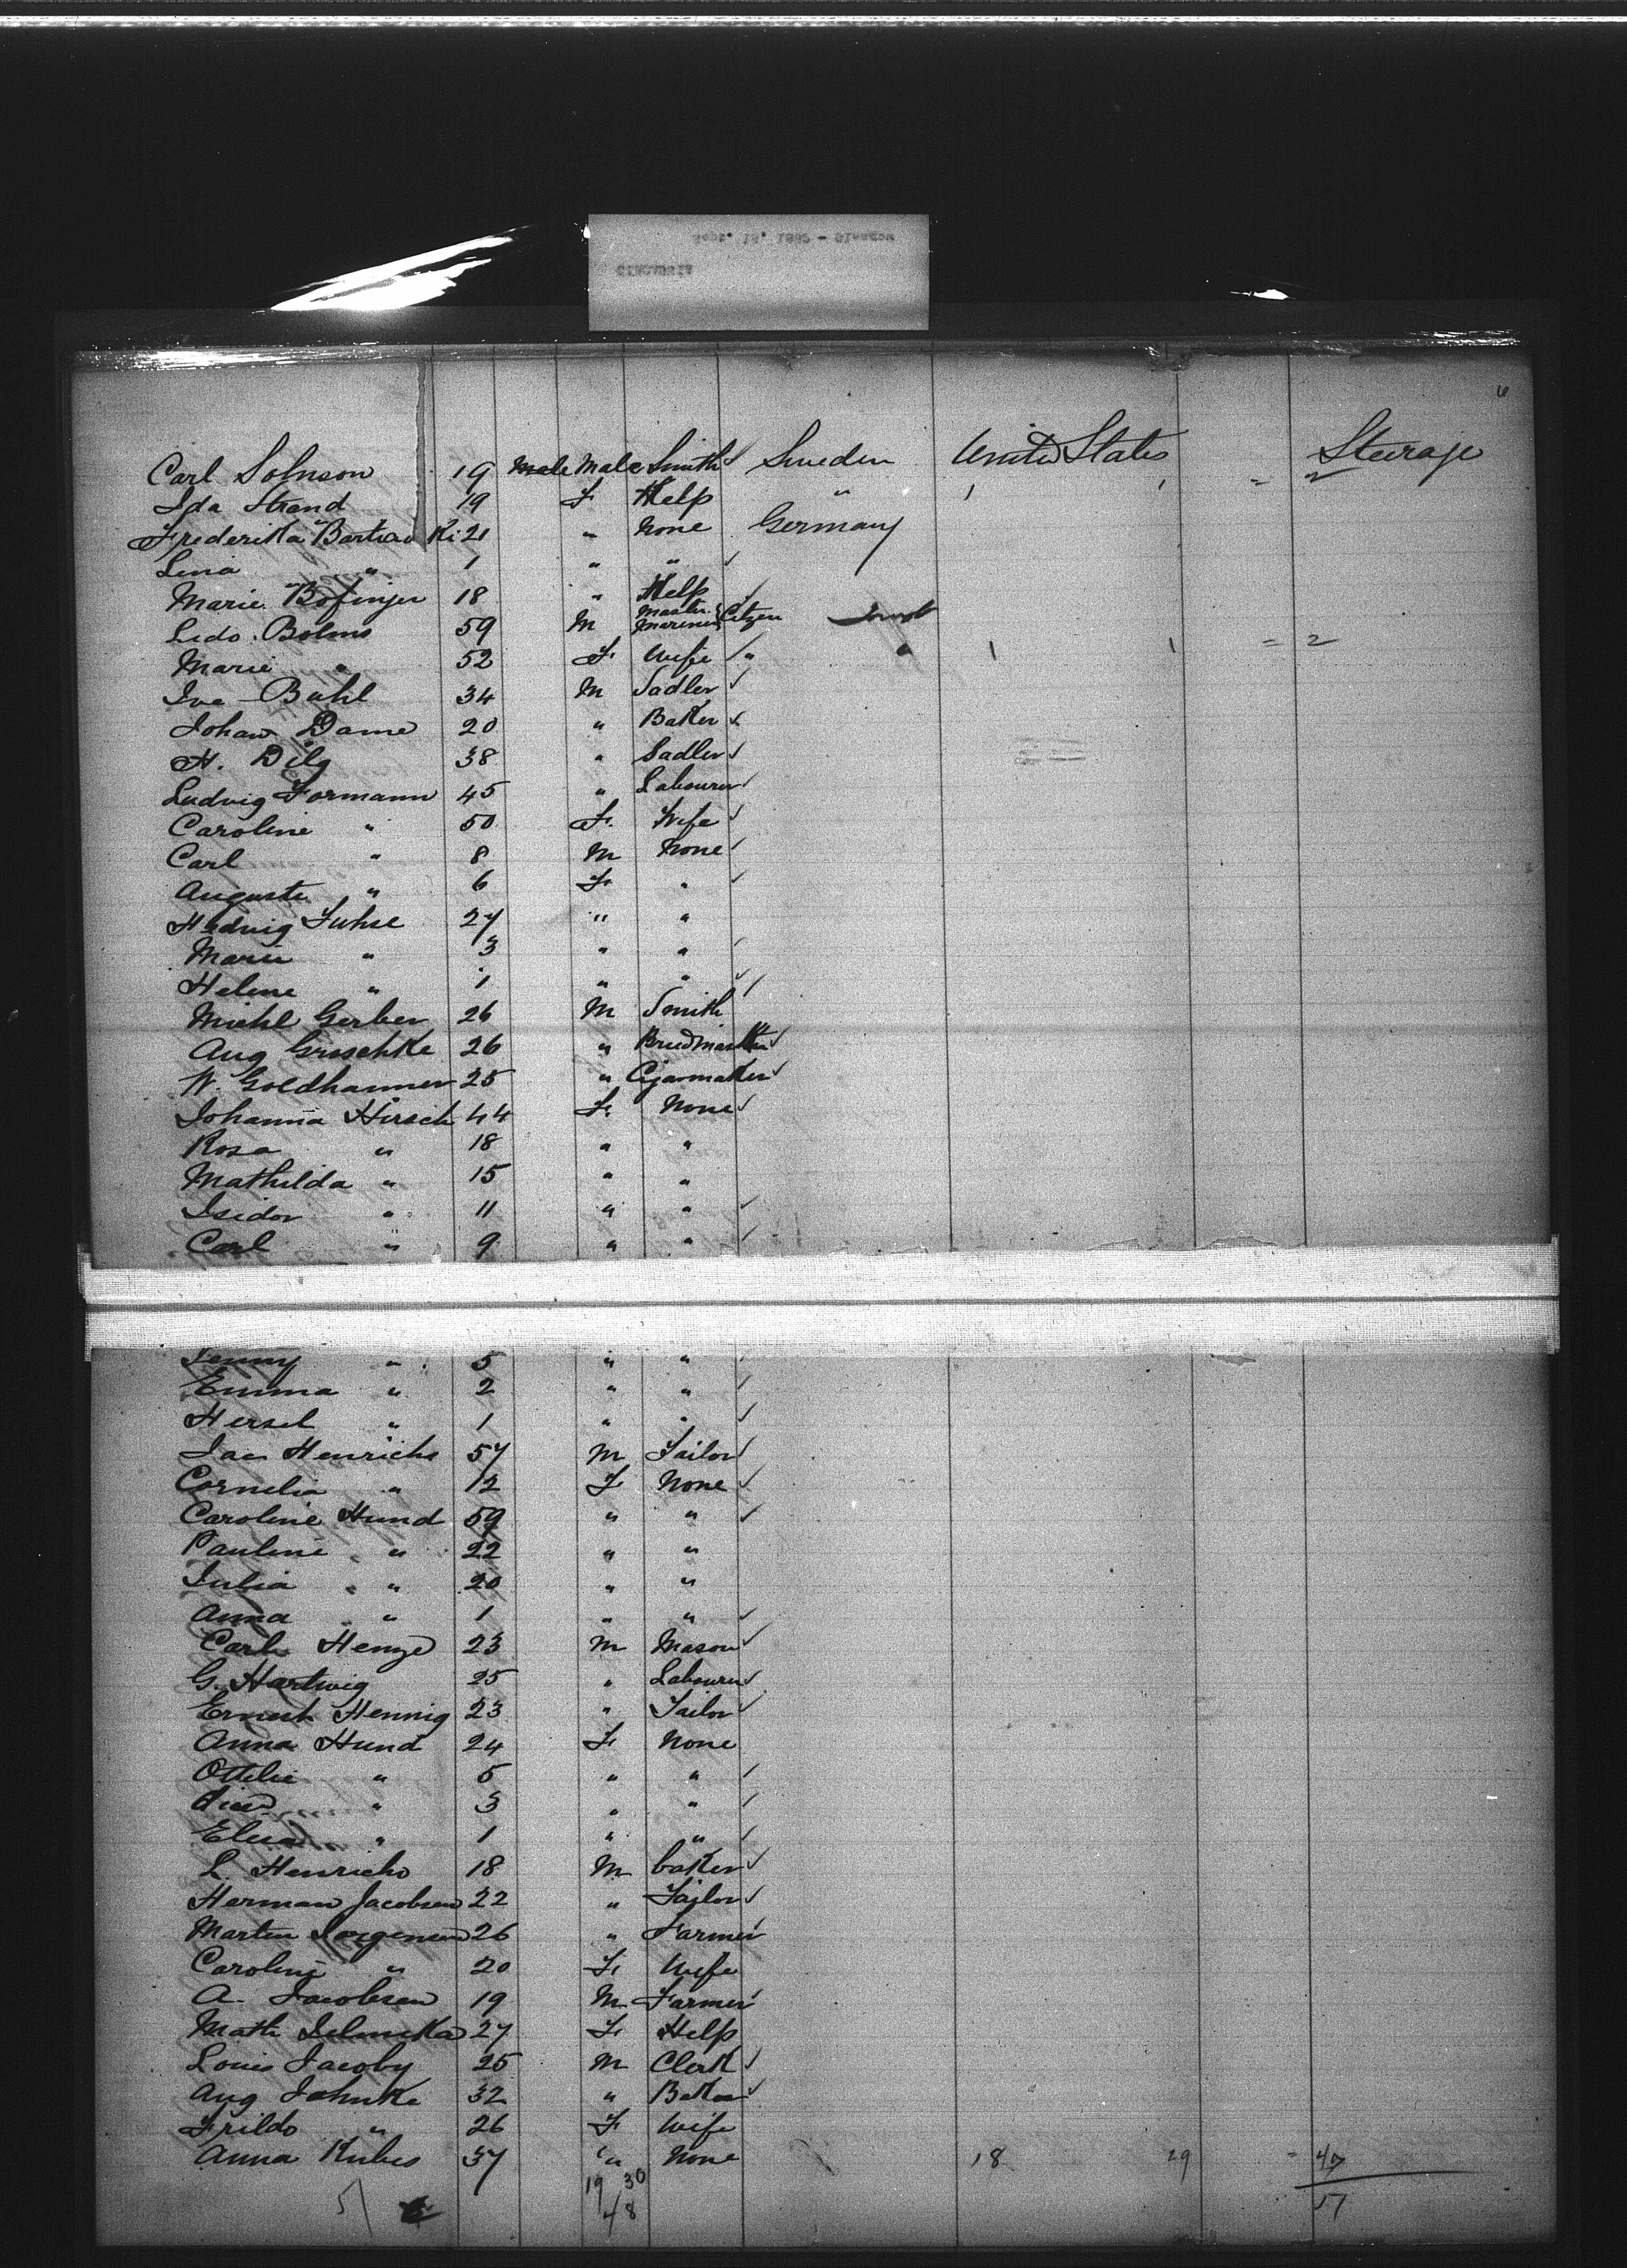 Sept. 13, 1887 - Glasgow
6
Carl Johnson 19 Male Male Smith Sweden United States Steerage
Ida Strand 19 F Help " 1 1 = 2
Frederika Ki 21 " None Germany
Lina " 1 " "
Marie Bofinger 18 " Help
Ludo. Bolms 59 M Master Mariner Citizen
Marie " 52 F Wife " " 1 1 = 2
Iva Buhl 34 M Sadler
Johan Dame 20 " Baker
H. Dilg 38 " Sadler
Ludvig Formann 45 " Labourer
Caroline " 50 F. Wife
Carl " 8 M None
Auguste " 6 F "
Hedvig Fuhse 27 " "
Marie " 3 " "
Helene " 1 " "
Michl Gerber 26 M Smith
Aug Grischke 26 "
W. Goldhammer 25 " Cigarmaker
Johanna Hirsch 44 F. None
Rosa " 18 " "
Mathilda " 15 " "
Isidor " 11 " "
Carl " 9 " "
Jenny " 5 " "
Emma " 2 " "
Hersel " 1 " "
Jac Henrichs 57 M Tailor
Cornelia " 12 F None
Caroline Hund 59 " "
Pauline " 22 " "
Julia " 20 " "
Anna " 1 " "
Carl Henze 23 M Mason
G. Hartwig 25 " Labourer
Ernest Hennig 23 " Tailor
Anna Hund 24 F None
Ottilie " 5 " "
" 3 " "
Elisa " 1 " "
L. Henrichs 18 M baker
Herman Jacobsen 22 " Tailor
Martin Jorgensen 26 " Farmer
Caroline " 20 F Wife
A. Jacobsen 19 M Farmer
Math 27 F Help
Louis Jacoby 25 M Clerk
Aug Jahnke 32 " Baker
Frildo " 26 F Wife
Anna Kubes 37 " None 18 29 = 47
19 30 51
51 48